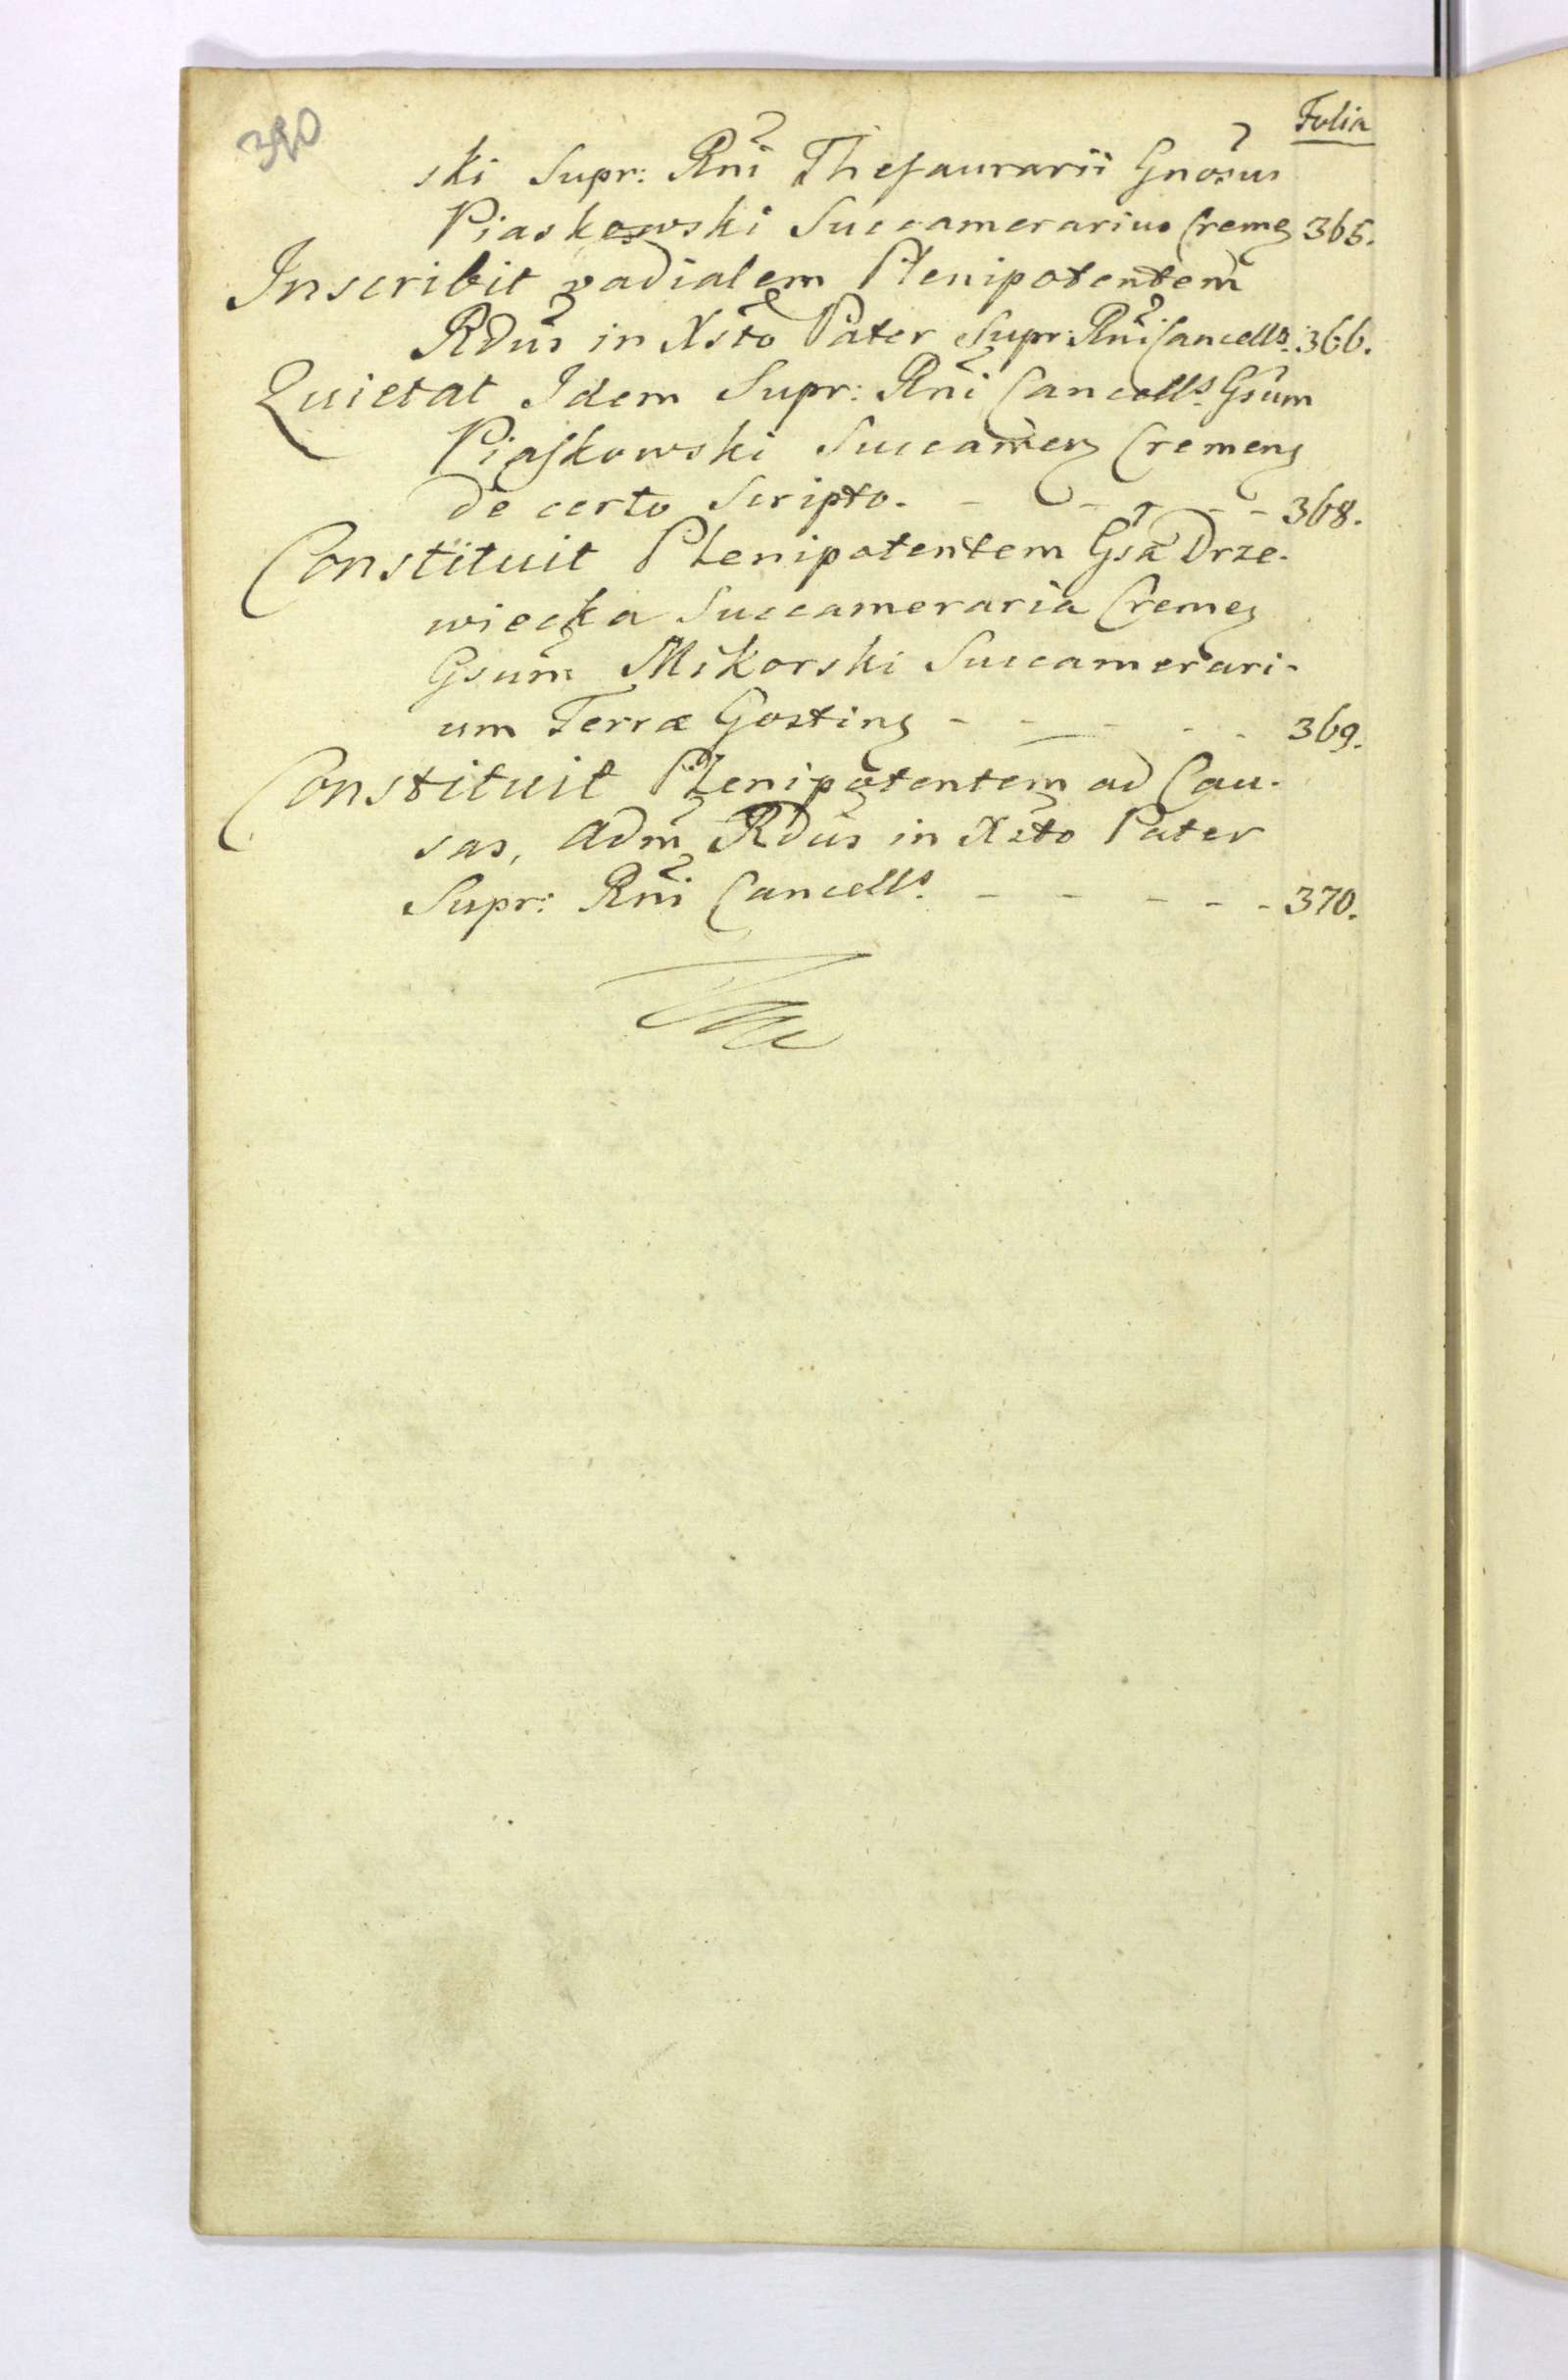 Folia
ski Supr: Rni Thesaurarii Gnosus
Piaskowski Succamerarius Cremen 365.
Inscribit vadialem Plenipotentem
Rdus in Xsto Pater Supr: Rni Cancells. 366.
Quietat Idem Supr: Rni Cancells. Gsum
Piaskowski Succamer Cremens
de certo Scripto. - - - - - 368.
Constituit Plenipotentem Gsa Drze-
wiecka Succameraria Cremen
Gsum Mikorski Succamerari-
um Terræ Gostins - - - - - 369.
Constituit Plenipotentem ad Cau-
sas, Adm Rdus in Xsto Pater
Supr: Rni Cancells. - - - - - 370.